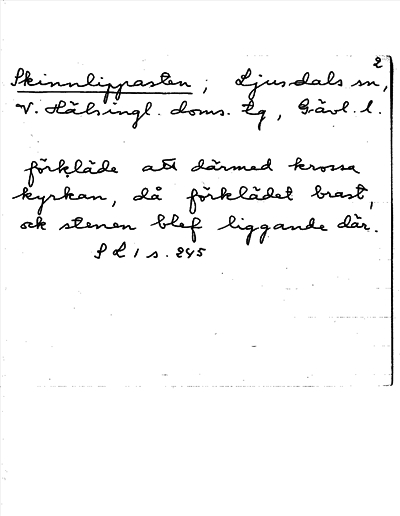 2
Skinnlippasten ; Ljusdals sn,
V. Hälsingl. doms. tg, Gävl. l.
förkläde att därmed krossa
kyrkan, då förklädet brast,
ock stenen blef liggande där.
S L 1 s. 245